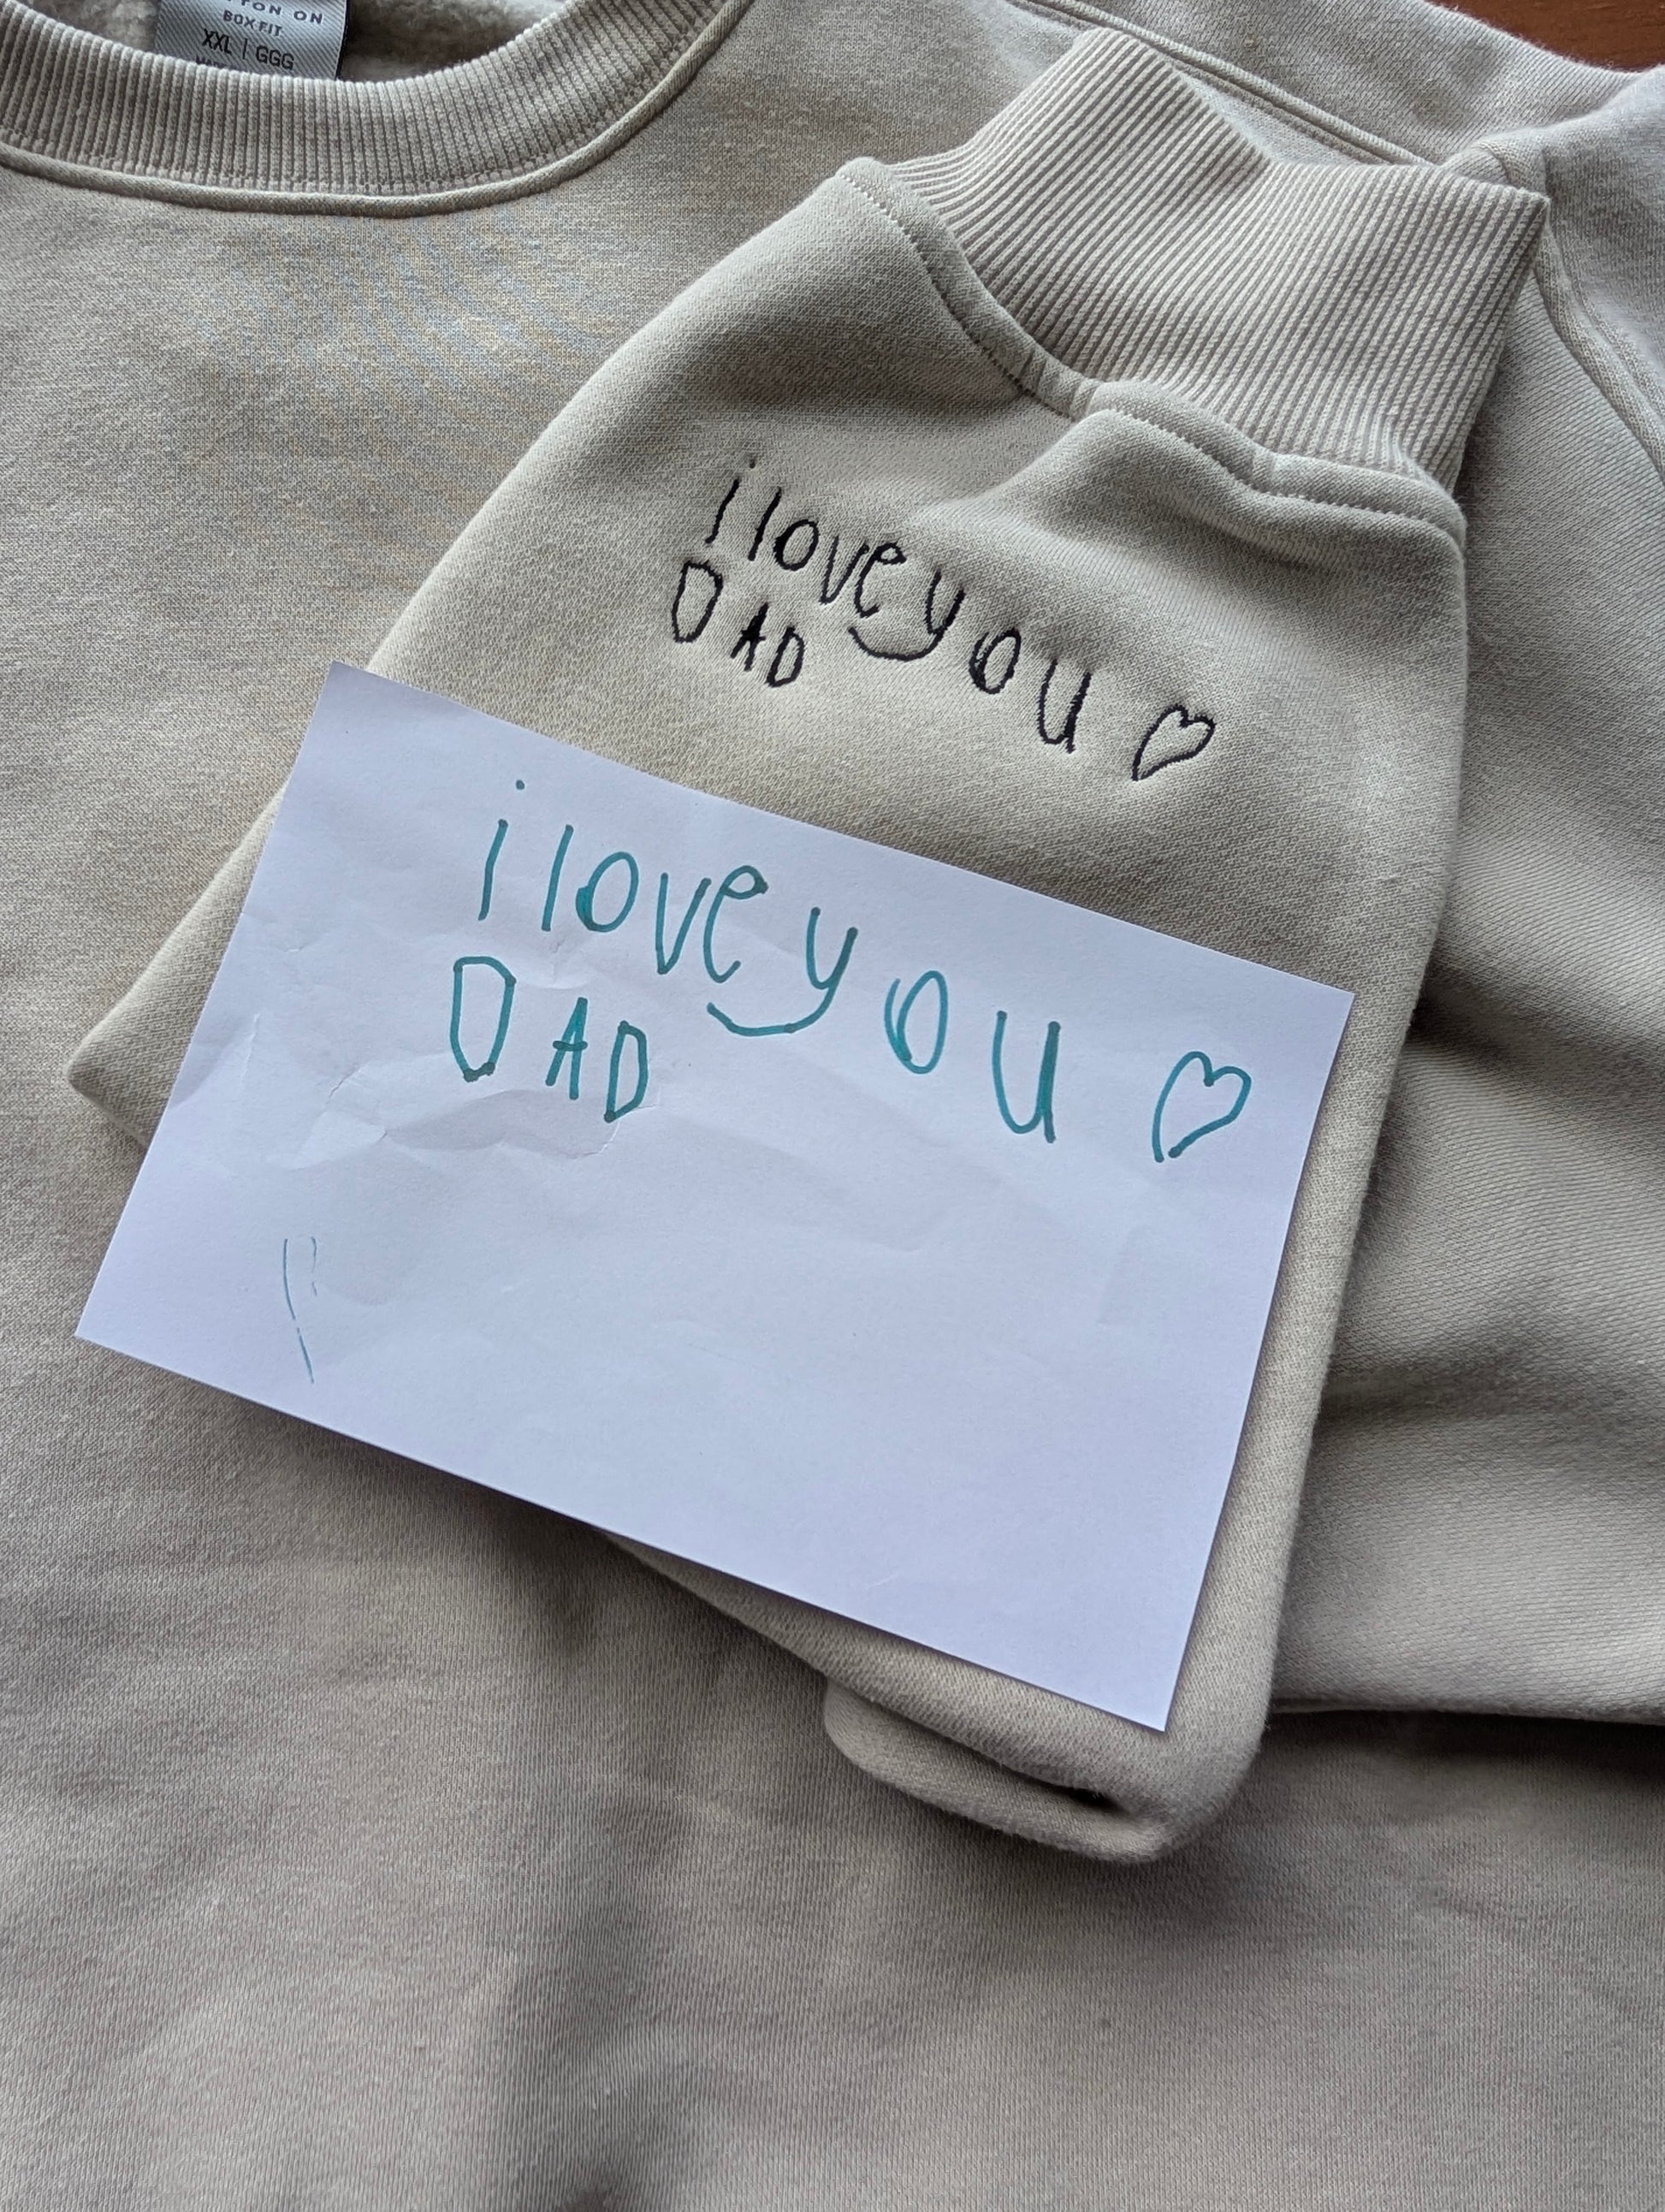 ON
BOX FIT
XXL | GGG
i love you ♡
DAD
i love you ♡
DAD